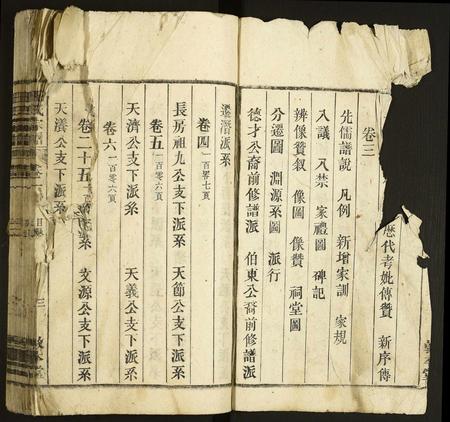 歷代考妣傳贊 新序傳
卷三
先儒譜說 凡例 新增家訓 家規
入議 入禁 家禮圖 碑記
辨像贊叙 像圖 像贊 祠堂圖
分遷圖 淵源系圖 派行
德才公裔前修譜派 伯東公裔前修譜派
遷潛派系
卷四 一百零七頁
長房祖九公支下派系 天節公支下派系
卷五 一百零六頁
天濟公支下派系 天義公支下派系
卷六 一百零六頁
卷二十五 文源公支下派系
天濱公支下派系